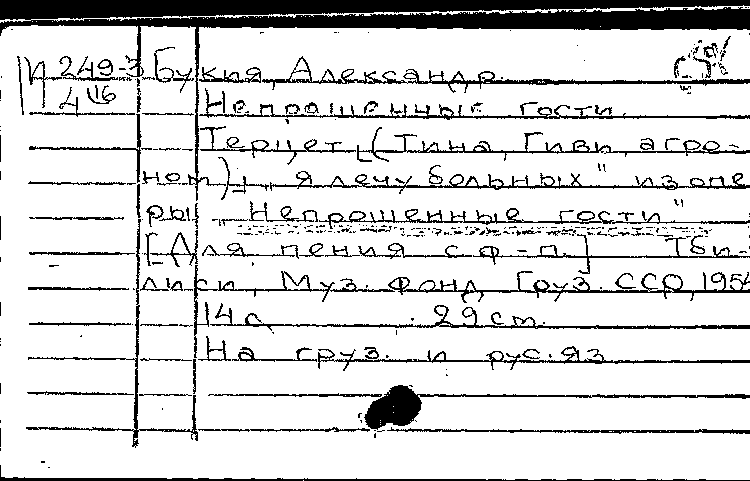 П 249-3 Букия, Александр.
4116 Непрошенные гости.
Терцет [(Тина, Гиви, агро-
ном)] „я лечу больных" из опе
ры „Непрошенные гости"
[Для пения с ф-п.] Тби-
лиси, Муз. Фонд Груз. ССР, 1954
14с. 29 cm.
На груз. и рус. яз